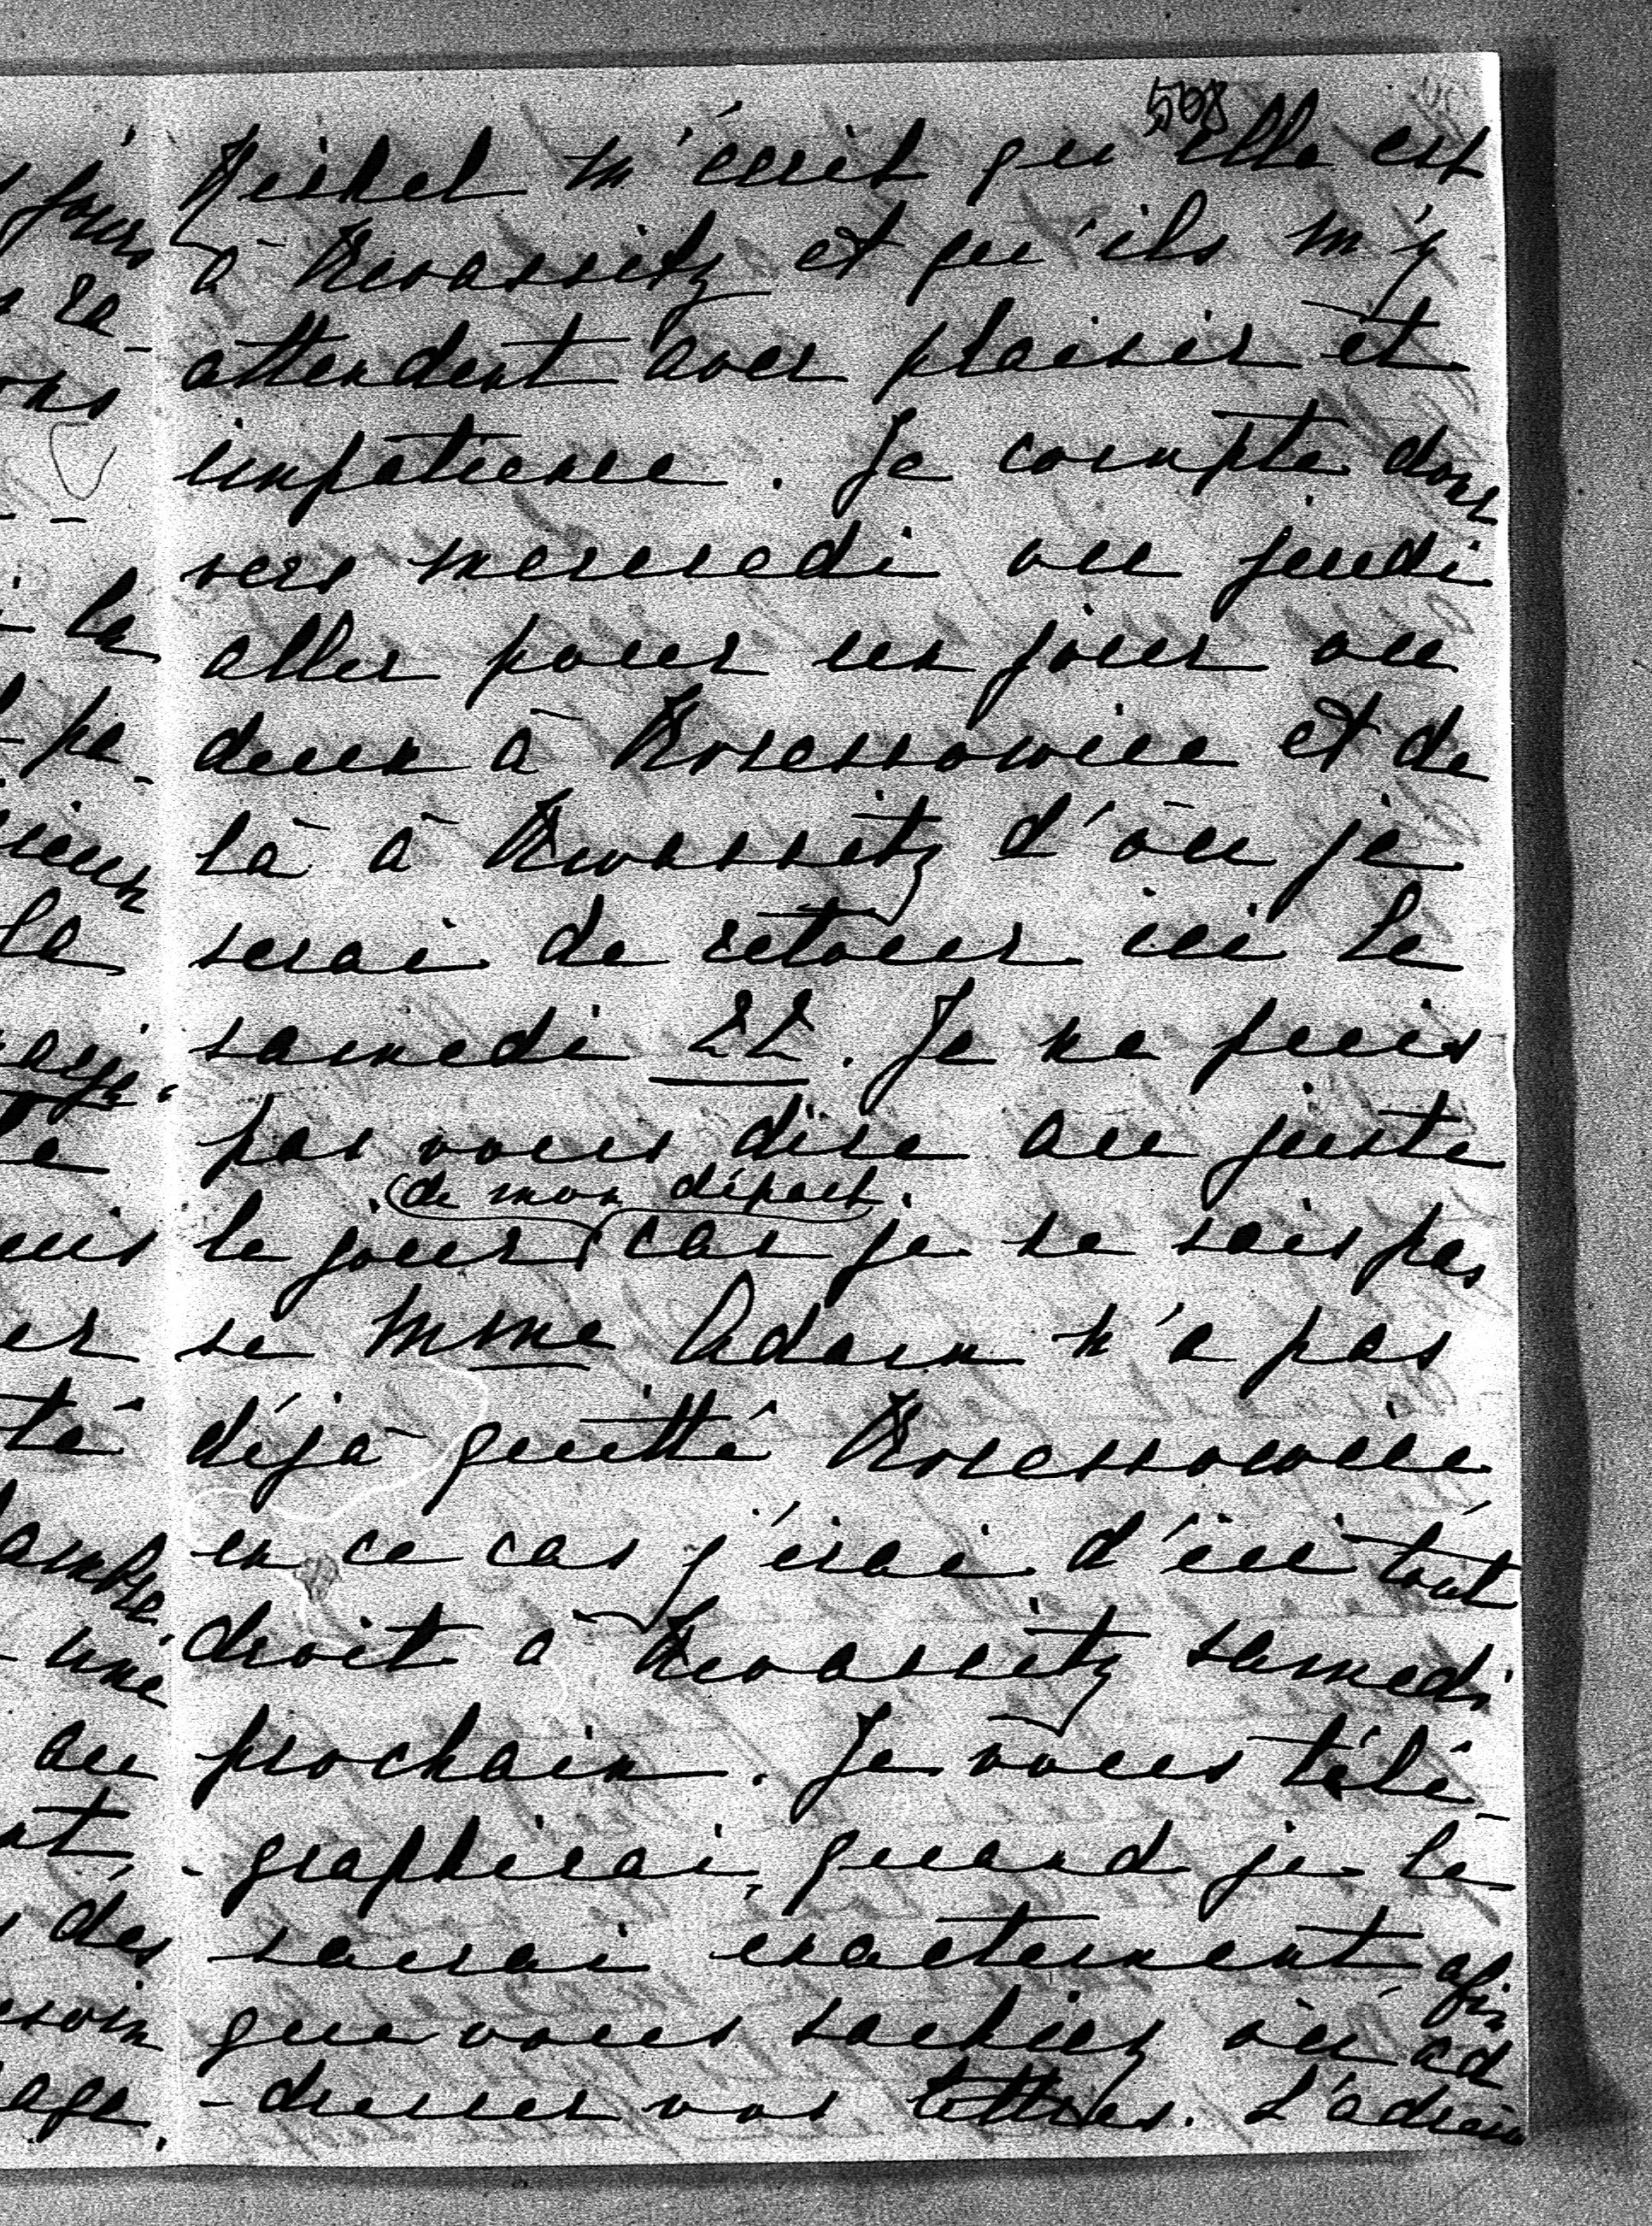 508
m'écrit qu'elle est
à Kwassitz et qu'ils m'y
attendent avec plaisir et
impatience. Je compte donc
vers mercredi ou jeudi
aller pour un jour ou
deux à et de
là à Kwassitz d'où je
serai de retour ici le
samedi 22. Je ne puis
pas vous dire au juste
de mon départ
le jour, car je ne sais pas
si Mme Adam n'a pas
déjà quitté
en ce cas j'irai d'ici tout
droit à Kwassitz samedi
prochain. Je vous télé-
-graphirai quand je le
saurai exactement afin
que vous sachiez où ad
-dresser vos lettres. L'adresse
jours
re-
ons
la
pe-
la
er
té
une
au
des